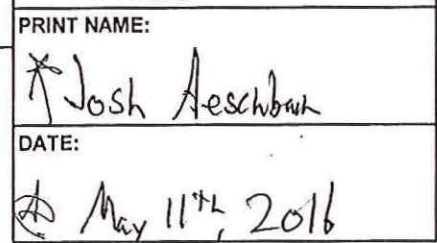 PRINT NAME:
Josh Aeschbach
DATE:
May 11th, 2016